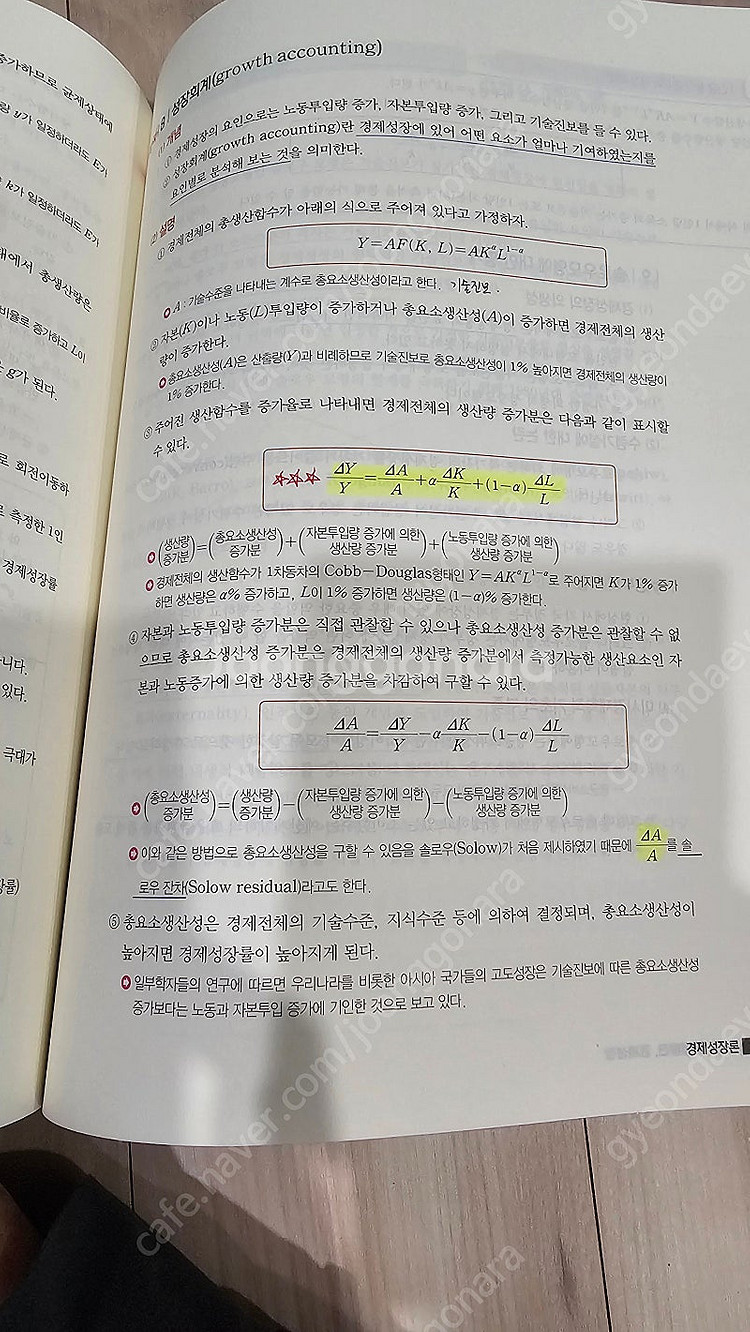 증가하므로 균제상태에
y가 일정하더라도 E가
k가 일정하더라도 E가
태에서 총생산량은
비율로 증가하고 L이
g가 된다.
로 회전이동하
로 측정한 1인
경제성장률
니다.
있다.
극대가
장률)
8 성장회계(growth accounting)
(1) 개념
① 경제성장의 요인으로는 노동투입량 증가, 자본투입량 증가, 그리고 기술진보를 들 수 있다.
② 성장회계(growth accounting)란 경제성장에 있어 어떤 요소가 얼마나 기여하였는지를
요인별로 분석해 보는 것을 의미한다.
(2) 설명
① 경제전체의 총생산함수가 아래의 식으로 주어져 있다고 가정하자.
Y=AF(K, L)=AK^αL^1−α
A : 기술수준을 나타내는 계수로 총요소생산성이라고 한다. 기술진보.
② 자본(K)이나 노동(L)투입량이 증가하거나 총요소생산성(A)이 증가하면 경제전체의 생산
량이 증가한다.
총요소생산성(A)은 산출량(Y)과 비례하므로 기술진보로 총요소생산성이 1% 높아지면 경제전체의 생산량이
1% 증가한다.
③ 주어진 생산함수를 증가율로 나타내면 경제전체의 생산량 증가분은 다음과 같이 표시할
수 있다.
☆☆☆ ΔY/Y=ΔA/A+αΔK/K+(1−α)ΔL/L
(생산량 증가분)=(총요소생산성 증가분)+(자본투입량 증가에 의한 생산량 증가분)+(노동투입량 증가에 의한 생산량 증가분)
경제전체의 생산함수가 1차동차의 Cobb−Douglas형태인 Y=AK^αL^1−α로 주어지면 K가 1% 증가
하면 생산량은 α% 증가하고, L이 1% 증가하면 생산량은 (1−α)% 증가한다.
④ 자본과 노동투입량 증가분은 직접 관찰할 수 있으나 총요소생산성 증가분은 관찰할 수 없
으므로 총요소생산성 증가분은 경제전체의 생산량 증가분에서 측정가능한 생산요소인 자
본과 노동증가에 의한 생산량 증가분을 차감하여 구할 수 있다.
ΔA/A=ΔY/Y−αΔK/K−(1−α)ΔL/L
(총요소생산성 증가분)=(생산량 증가분)−(자본투입량 증가에 의한 생산량 증가분)−(노동투입량 증가에 의한 생산량 증가분)
이와 같은 방법으로 총요소생산성을 구할 수 있음을 솔로우(Solow)가 처음 제시하였기 때문에 ΔA/A를 솔
로우 잔차(Solow residual)라고도 한다.
⑤ 총요소생산성은 경제전체의 기술수준, 지식수준 등에 의하여 결정되며, 총요소생산성이
높아지면 경제성장률이 높아지게 된다.
일부학자들의 연구에 따르면 우리나라를 비롯한 아시아 국가들의 고도성장은 기술진보에 따른 총요소생산성
증가보다는 노동과 자본투입 증가에 기인한 것으로 보고 있다.
경제성장론
cafe.naver.com/joonggonara